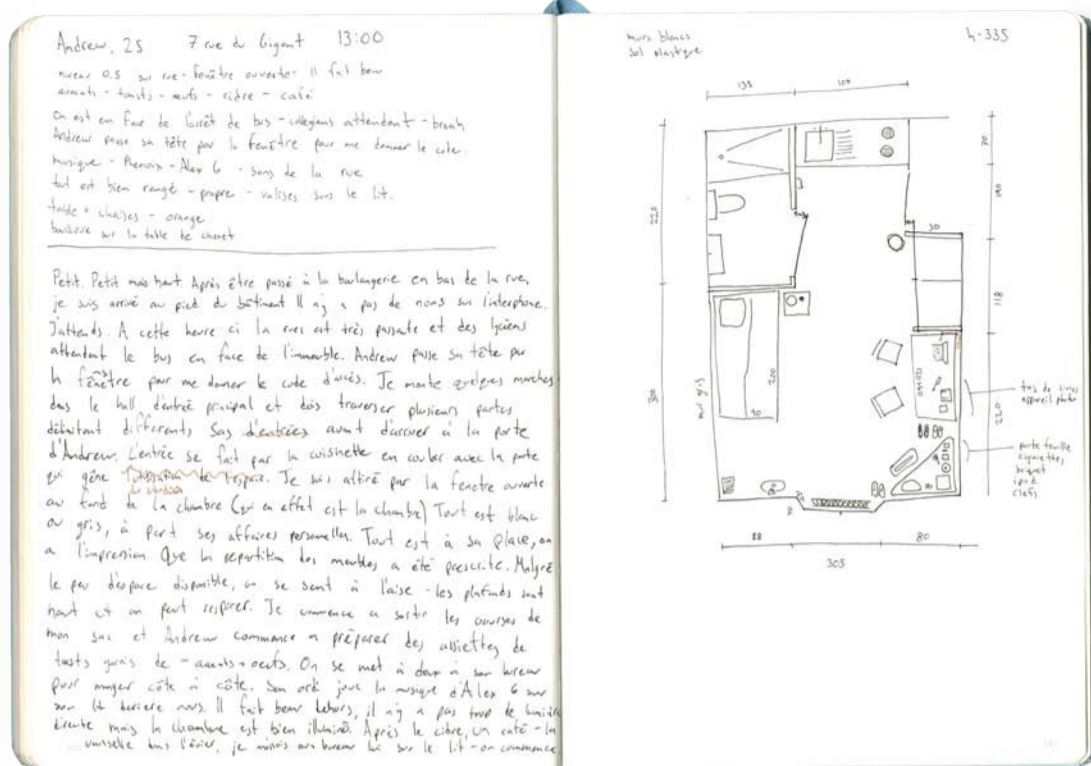 Andrew, 25 7 rue du Gigant 13:00
niveau 0.5 sur rue - fenêtre ouverte - Il fait beau
avocats - toasts - œufs - cidre - café
On est en face de l'arrêt de bus - collégiens attendent - break
Andrew passe sa tête par la fenêtre pour me donner le code.
musique - Phenoix - Alex G - sons de la rue
tout est bien rangé - propre - valises sous le lit.
table + chaises - orange
bouilloire sur la table de chevet
Petit. Petit mais haut. Après être passé à la boulangerie en bas de la rue,
je suis arrivé au pied du bâtiment Il n'y a pas de noms sur l'interphone.
J'attends. A cette heure ci la rues est très passante et des lycéens
attendent le bus en face de l'immeuble. Andrew passe sa tête par
la fenêtre pour me donner le code d'accès. Je monte quelques marches
dans le hall d'entrée principal et dois traverser plusieurs portes
délimitant differents sas d'entrées avant d'arriver à la porte
d'Andrew. L'entrée se fait par la cuisinette en couloir avec la porte
qui gêne l'utilisation de l'espace. Je suis attiré par la fenetre ouverte
du studio
au fond de la chambre (qui en effet est la chambre) Tout est blanc
ou gris, à part ses affaires personelles. Tout est à sa place, on
a l'impression Que la repartition des meubles a été prescrite. Malgré
le peu d'espace disponible, on se sent à l'aise - les plafonds sont
haut et on peut respirer. Je commence a sortir les courses de
mon sac et Andrew commence a préparer des assiettes de
toasts garnis de - avocats + oeufs. On se met à deux à son bureau
pour manger côte à côte. Son ordi joue la musique d'Alex G sur
son lit derriere nous. Il fait beau dehors, il n'y a pas trop de lumière
directe mais la chambre est bien illuminé. Après le cidre, un café - la
vaisselle dans l'évier, je au bureau lui sur le lit - on commence
murs blancs
sol plastique
h.335
135
104
70
190
220
30
118
300
mur gris
200
90
220
tas de
appareil photo
porte feuille
cigarettes
briquet
ipod
clefs
88
80
305